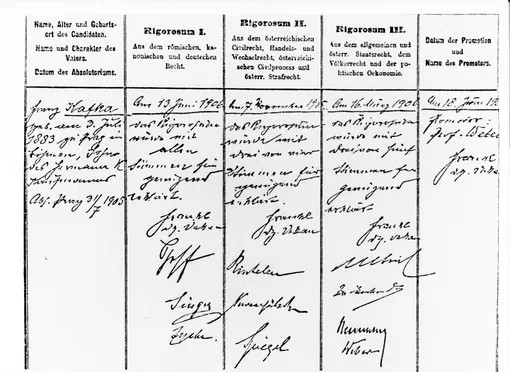 Name, Alter und Geburts-
ort des Candidaten.
Name und Charakter des
Vaters.
Datum des Absolutoriums.
Rigorosum I.
Aus dem römischen, ka-
nonischen und deutschen
Recht.
Rigorosum II.
Aus dem österreichischen
Civilrecht, Handels- und
Wechselrecht, österreichi-
schen Civilprocess und
österr. Strafrecht.
Rigorosum III.
Aus dem allgemeinen und
österr. Staatsrecht, dem
Völkerrecht und der po-
litischen Oekonomie.
Datum der Promotion
und
Name des Promotors.
Franz Kafka
geb. am 3. Juli
1883 zu Prag in
Böhmen, Sohn
des Hermann K
Kaufmannes
Abs. Prag
Am 13 Juni 1906
das Rigorosum
wurde mit
allen
Stimmen für
genügend
erklärt.
Frankl
dz. Dekan
Pfaff
Singer
Am 7. November 1905
das Rigorosum
wurde mit
drei von vier
Stimmen für
genügend
erklärt.
Frankl
dz. Dekan
Rintelen
Spiegel
Am 16 März 1906
das Rigorosum
wurde mit
drei von fünf
Stimmen für
genügend
erklärt.
Frankl
dz. Dekan
Ulbrich
Weber
Am 18. Juni 19
Promotor:
Prof. Weber
Frankl
dz. Dekan